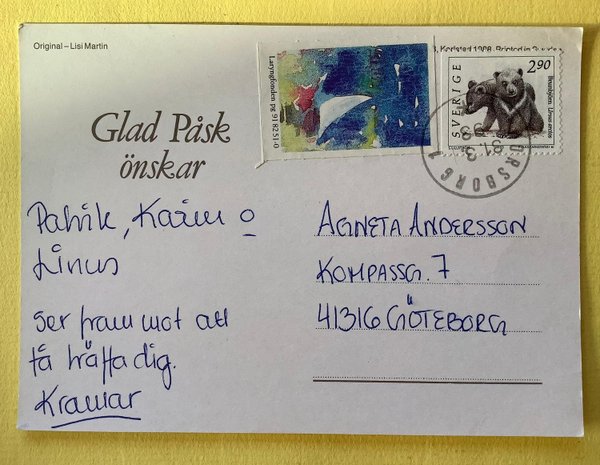 Original – Lisi Martin
Karlstad 1988. Printed in
Laryngfonden pg 91 82 51-0
SVERIGE
2.90
Brunbjörn Ursus arctos
31.3
Glad Påsk
önskar
Patrik, Karin o
Linus
Ser fram mot att
få träffa dig.
Kramar
AGNETA ANDERSSON
KOMPASSG. 7
41316 GÖTEBORG